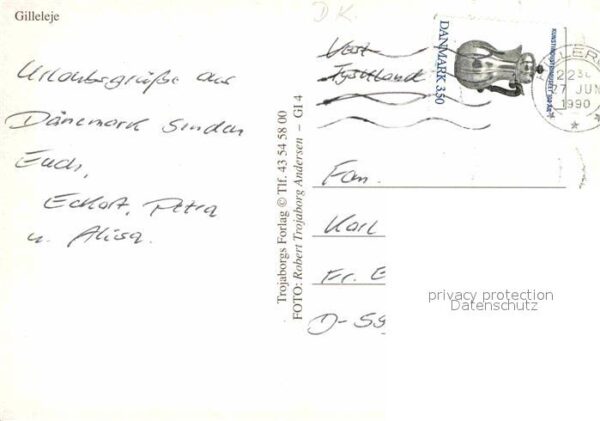 Gilleleje
Urlaubsgrüße aus
Dänemark senden
Euch,
Eckart, Petra
u. Alisa.
Trojaborgs Forlag © Tlf. 43 54 58 00
FOTO: Robert Trojaborg Andersen – GI 4
DK.
Vest
Tyskland
DANMARK 3.50
22
27 JUN
1990
Fam.
Karl
Fr.
D-55
privacy protection
Datenschutz